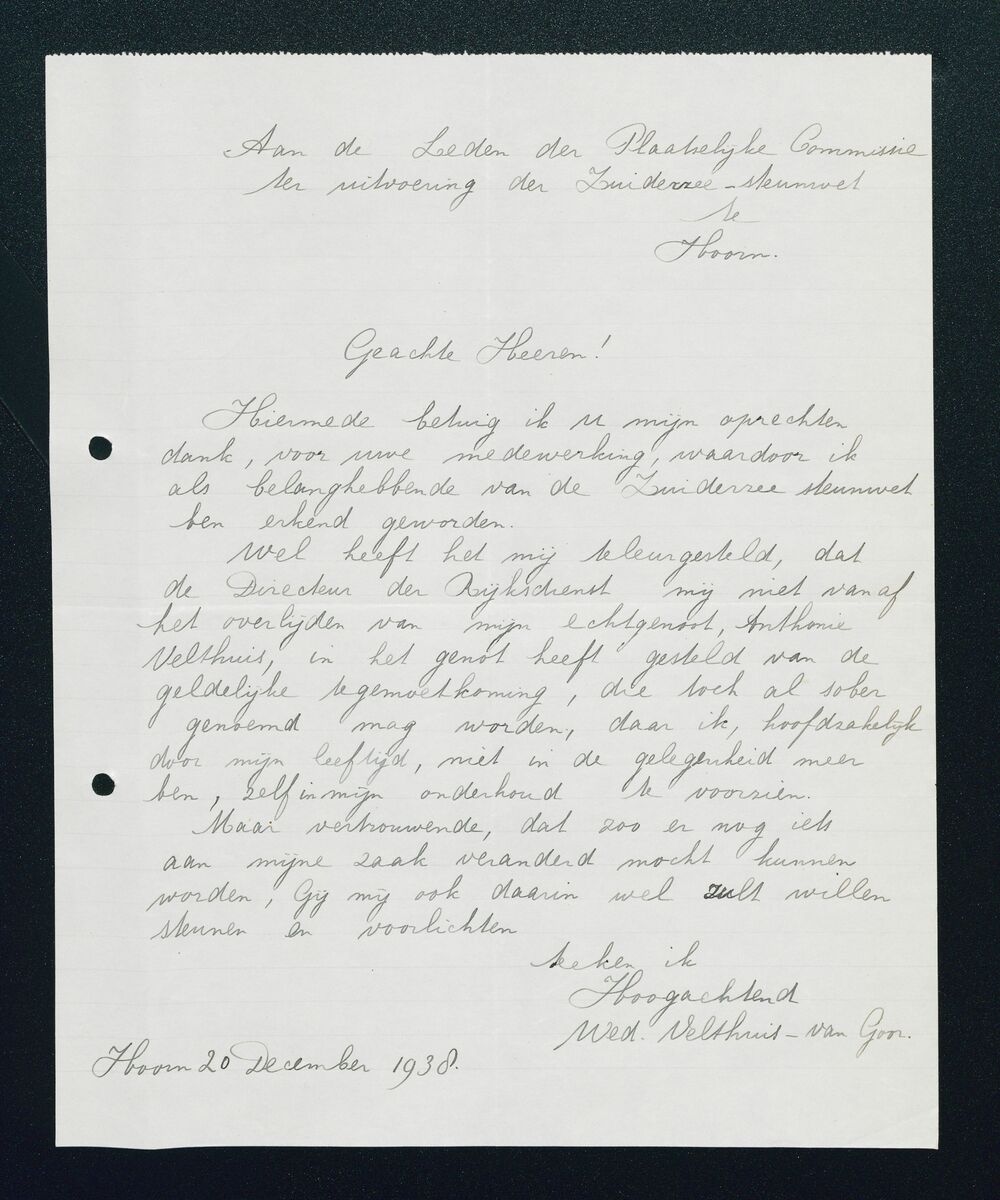 Aan de Leden der Plaatselyke Commissie
ter uitvoering der Zuiderzee-steunwet
te
Hoorn.
Geachte Heeren!
Hiermede betuig ik u mijn oprechten
dank, voor uwe medewerking, waardoor ik
als belanghebbende van de Zuiderzee steunwet
ben erkend geworden.
Wel heeft het mij teleurgesteld, dat
de Directeur der Rijksdienst mij niet vanaf
het overlijden van mijn echtgenoot, Anthonie
Velthuis, in het genot heeft gesteld van de
geldelijke tegemoetkoming, die toch al sober
genoemd mag worden, daar ik, hoofdzakelijk
door mijn leeftijd, niet in de gelegenheid meer
ben, zelf in mijn onderhoud te voorzien.
Maar vertrouwende, dat zoo er nog iets
aan mijne zaak veranderd mocht kunnen
worden, Gij mij ook daarin wel zult willen
steunen en voorlichten
teeken ik
Hoogachtend
Wed. Velthuis-van Goor.
Hoorn 20 December 1938.